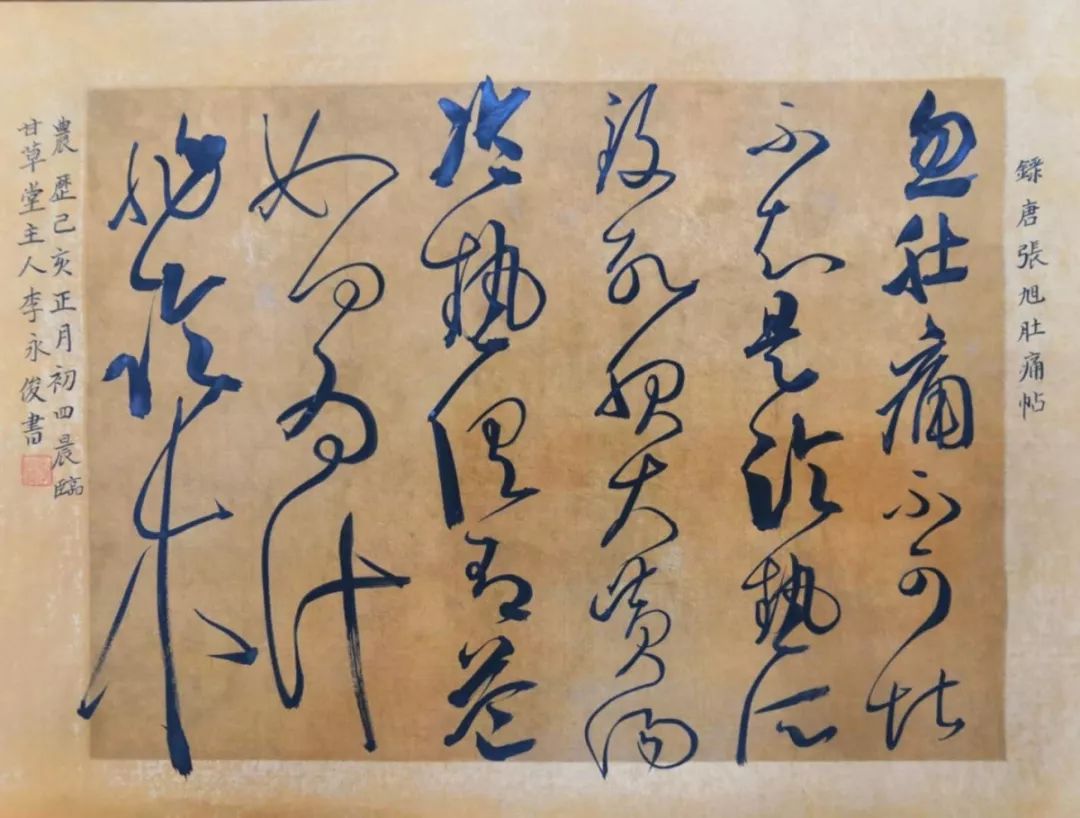 錄唐張旭肚痛帖
忽肚痛不可堪
不知是冷熱所
致欲服大黃湯
冷熱俱有益
如何為計
非臨床
農歷己亥正月初四晨臨
甘草堂主人李永俊書